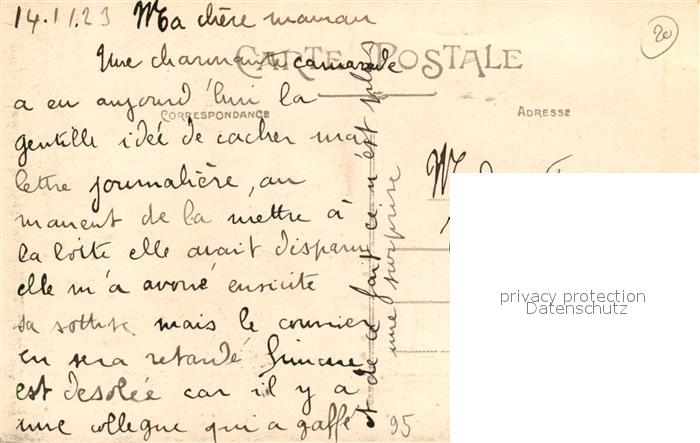 14.11.23 Ma chère maman
CARTE POSTALE
20
Une charmante camarade
a eu aujourd'hui la
CORRESPONDANCE
ADRESSE
gentille idée de cacher ma
lettre journalière, au
moment de la mettre à
la boîte elle avait disparu
elle m'a avoué ensuite
sa sottise mais le courrier
en sera retardé Simone
est desolée car il y a
une collegue qui a gaffé
et de ce fait ce n'est plus
une surprise
95
M
privacy protection
Datenschutz